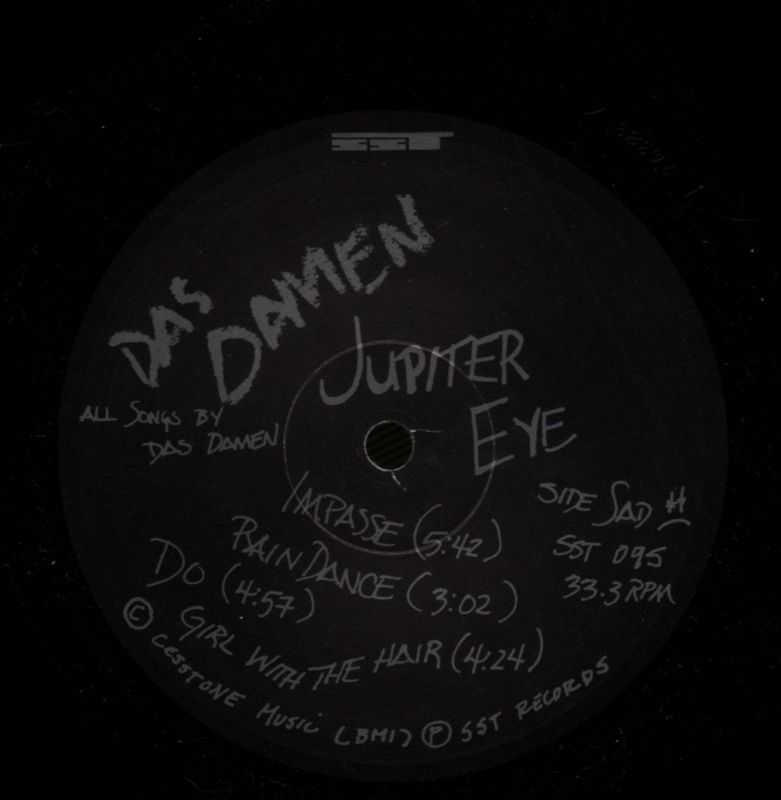 SST
DAS
DAMEN
JUPITER
EYE
ALL SONGS BY
DAS DAMEN
SIDE SAD
SST 095
33.3 RPM
IMPASSE (5:42)
RAIN DANCE (3:02)
DO (4:57)
GIRL WITH THE HAIR (4:24)
© CESSTONE MUSIC (BMI) ℗ SST RECORDS